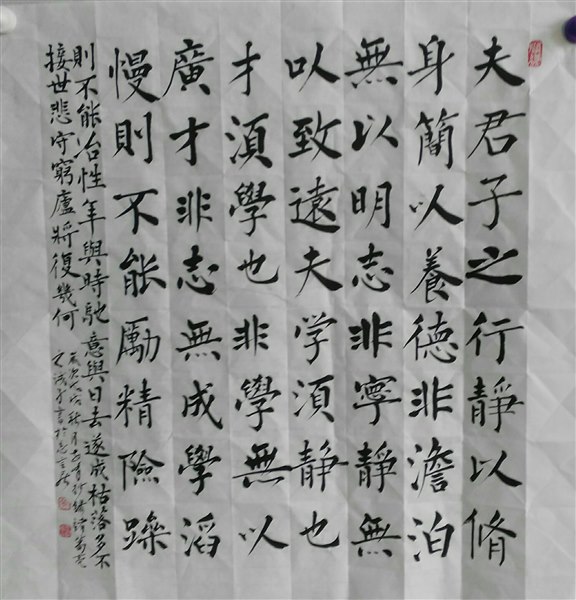 夫君子之行靜以脩
身簡以養德非澹泊
無以明志非寧靜無
以致遠夫学須静也
才須學也非學無以
廣才非志無成學滔
慢則不能勵精險躁
則不能冶性年與時馳意與日去遂成枯落多不
接世悲守窮廬將復幾何